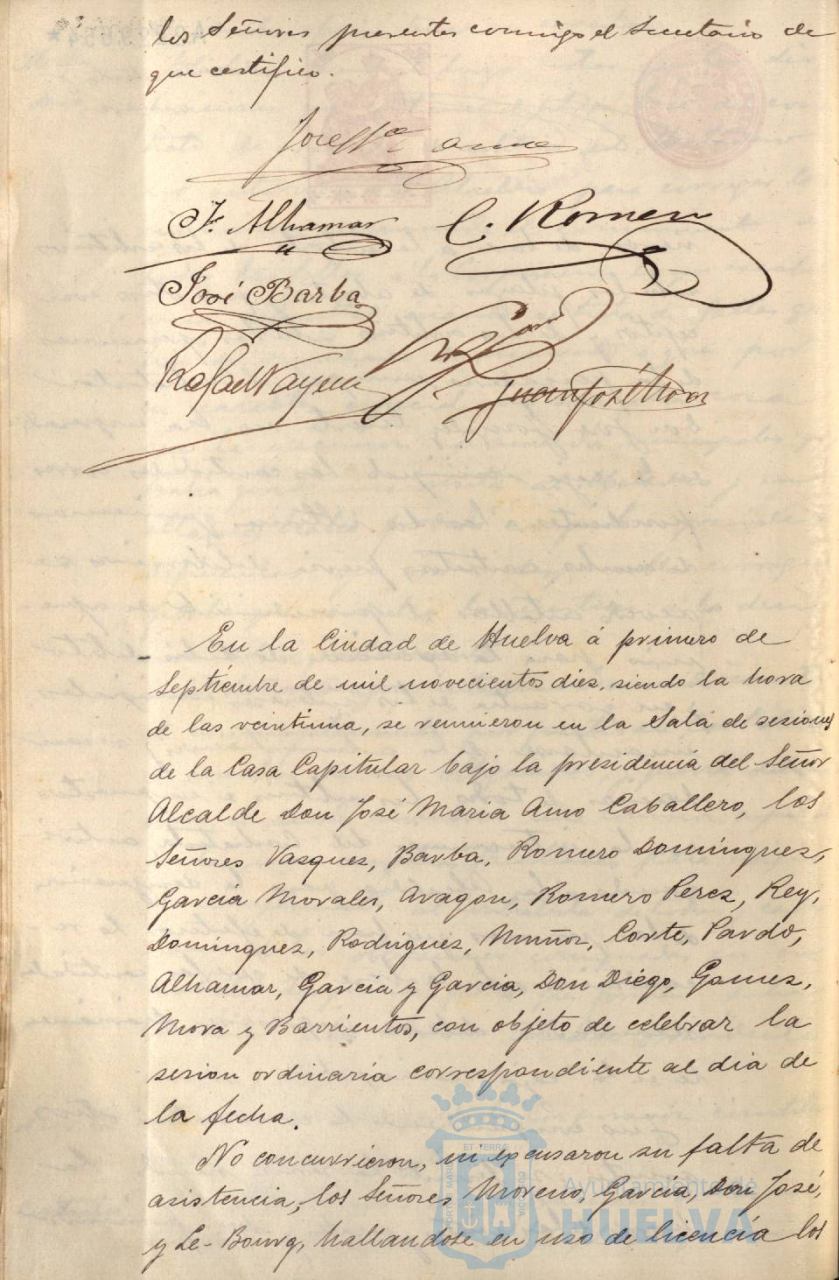 los Señores presentes conmigo el Secretario de
que certifico.
F. Alhamar C. Romero
José Barba
Rafael Vazquez Juan José Mora
En la Ciudad de Huelva á primero de
Septiembre de mil novecientos diez, siendo la hora
de las veintiuna, se reunieron en la Sala de sesiones
de la Casa Capitular bajo la presidencia del Señor
Alcalde Don José Maria Amo Caballero, los
Señores Vasques, Barba, Romero Domingues,
Garcia Morales, Aragon, Romero Perez, Rey,
Domingues, Rodrigues, Muñoz, Corte, Pardo,
Alhamar, Garcia y Garcia, Don Diego, Gomez,
Mora y Barrientos, con objeto de celebrar la
sesion ordinaria correspondiente al dia de
la fecha.
No concurrieron, ni excusaron su falta de
asistencia, los Señores Moreno, Garcia, Don José,
y Le-Bourg, hallandose en uso de licencia los
Ayuntamiento de
HUELVA